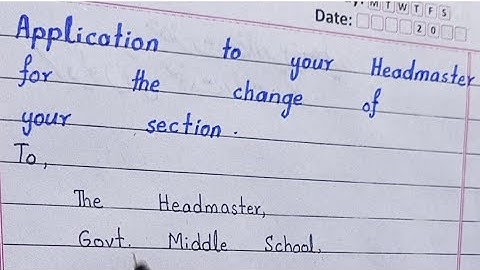 M T W T F S
Date: 2 0
Application to your Headmaster
for the change of
your section.
To,
The Headmaster,
Govt. Middle School,